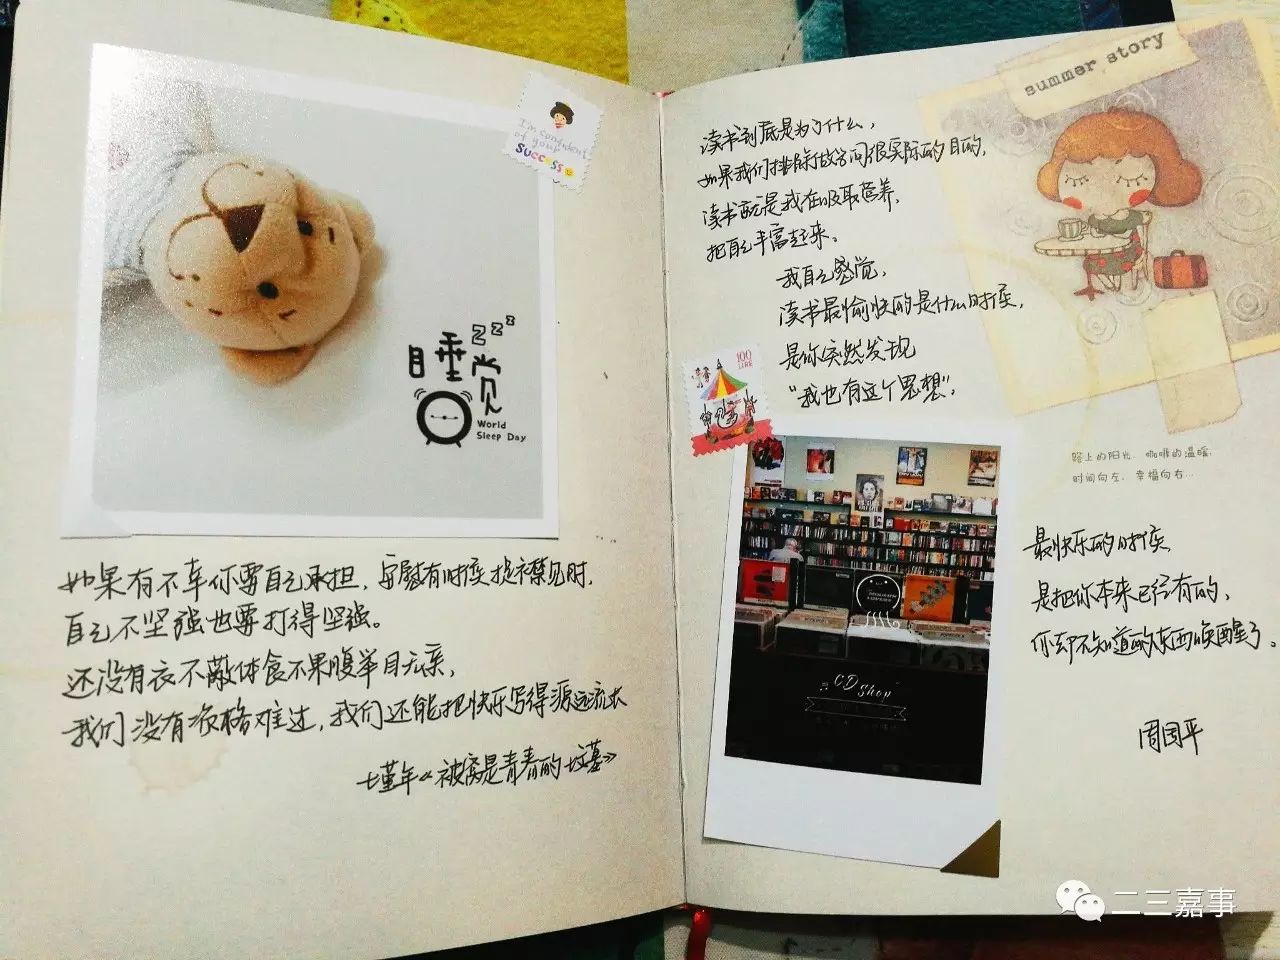 I'm confident
of your
success
睡觉
zzz
World
Sleep Day
如果有不幸你要自己承担,安慰有时候捉襟见肘,
自己不坚强也要打得坚强。
还没有衣不蔽体食不果腹举目无亲,
我们没有资格难过,我们还能把快乐写得源远流长
七堇年《被窝是青春的坟墓》
读书到底是为了什么,
如果我们排除做学问很实际的目的,
读书就是我在吸取营养,
把自己丰富起来。
我自己感觉,
读书最愉快的是什么时候,
是你突然发现
“我也有这个思想”。
summer story
100
LIRE
路上的阳光. 咖啡的温暖.
时间向左, 幸福向右...
CD
Shop
最快乐的时候
是把你本来已经有的,
你却不知道的东西唤醒了。
周国平
二三嘉事